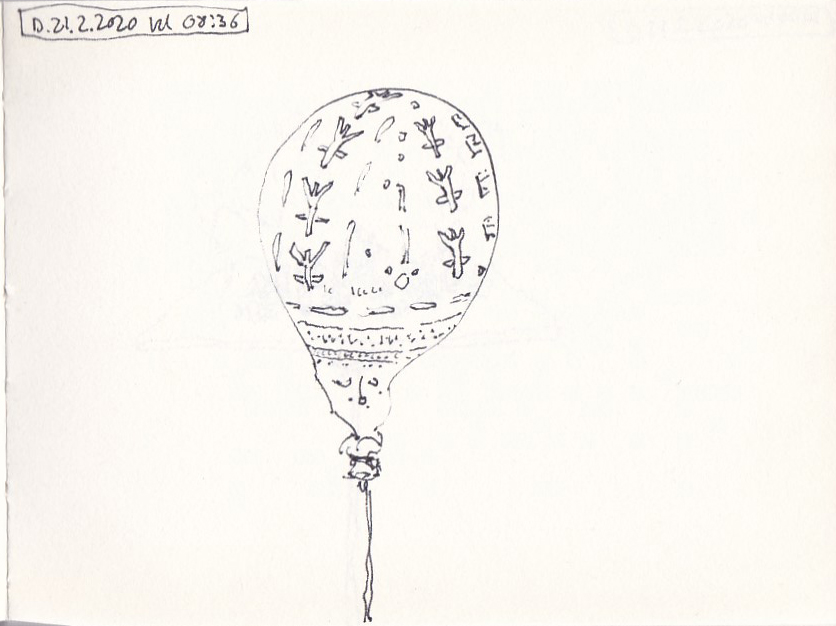 D.21.2.2020 kl 08:36